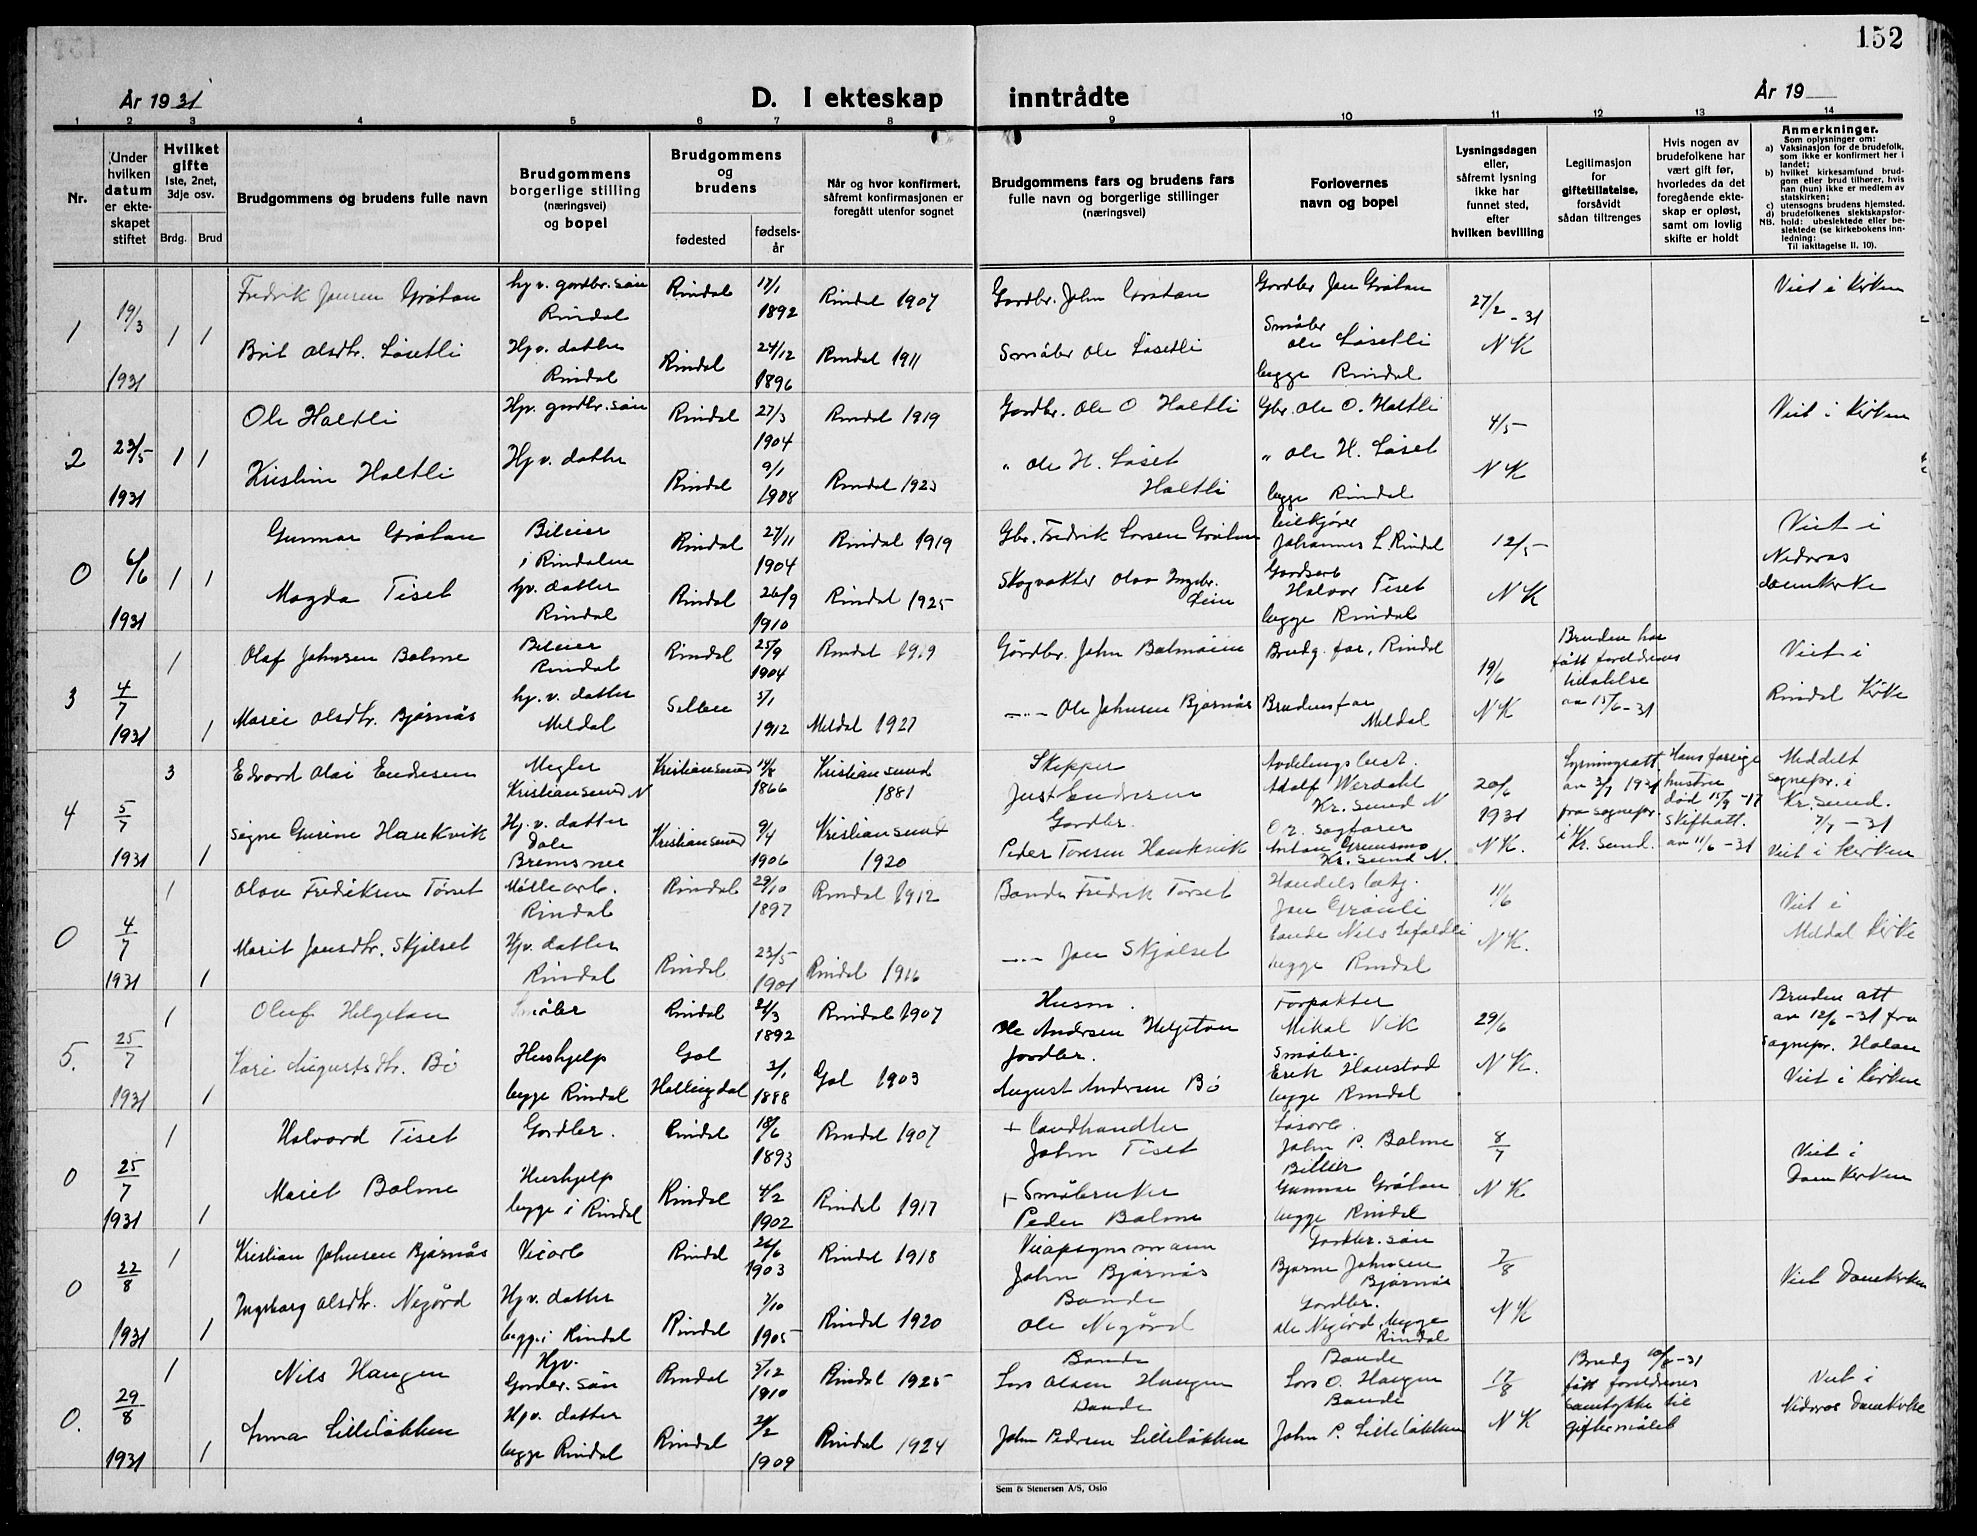 152
År 1931
D. I ekteskap inntrådte
År 19
1 2 3 4 5 6 7 8 9 10 11 12 13 14
Nr.
Under hvilken datum er ekteskapet stiftet
Hvilket gifte
1ste, 2net, 3dje osv.
Brdg. Brud
Brudgommens og brudens fulle navn
Brudgommens borgerlige stilling (næringsvei) og bopel
Brudgommens og brudens
fødested
fødselsår
Når og hvor konfirmert, såfremt konfirmasjonen er foregått utenfor sognet
Brudgommens fars og brudens fars fulle navn og borgerlige stillinger (næringsvei)
Forlovernes navn og bopel
Lysningsdagen eller, såfremt lysning ikke har funnet sted, efter hvilken bevilling
Legitimasjon for giftetillatelse, forsåvidt sådan tiltrenges
Hvis nogen av brudefolkene har vært gift før, hvorledes da det foregående ekteskap er opløst, samt om lovlig skifte er holdt
Anmerkninger.
Som oplysninger om:
a) Vaksinasjon for de brudefolk, som ikke er konfirmert her i landet;
b) hvilket kirkesamfund brudgom eller brud tilhører, hvis han (hun) ikke er medlem av statskirken;
c) utensogns brudens hjemsted.
d) brudefolkenes slektskapsforhold: ubeslektede eller beslektede (se kirkebokens innledning:
NB. Til iakttagelse II. 10).
1 19/3 1931 1 1
Fredrik Jonsen Gråtan
hv. gordbr. søn Rindal
Rindal 17/1 1892
Rindal 1907
Gordbr. John Gråtan
Gordbr Jon Gråtan
27/2 - 31
Viet i Kirken
Brit Olsdtr. Løsetli
Hv. datter Rindal
Rindal 24/12 1896
Rindal 1911
Småbr Ole Løsetli
Småbr Ole Løsetli
begge Rindal
NK
2 23/5 1931 1 1
Ole Holtli
Hv. gordbr. søn
Rindal 27/3 1904
Rindal 1919
Gordbr. Ole O Holtli
Gbr. Ole O. Holtli
4/5
Viet i Kirken
Kristine Holtli
Hv. datter
Rindal 9/1 1908
Rindal 1923
" Ole H. Løset Holtli
" Ole H. Løset
begge Rindal
NK
0 6/6 1931 1 1
Gunnar Gråtan
Bileier i Rindalen
Rindal 27/11 1904
Rindal 1919
Gbr. Fredrik Larsen Gråtan
bilkjører Johannes L. Rindal
12/5
Viet i Nidaros domkirke
Magda Tiset
hv. datter Rindal
Rindal 26/9 1910
Rindal 1925
Skogvokter Olav Ingebr.
Halvor Tiset
begge Rindal
NK
3 4/7 1931 1 1
Olaf Johnsen Bolme
Bileier Rindal
Rindal 25/9 1904
Rindal 1919
Gårdbr. John Bolmoien
Brudg. far, Rindal
19/6
Bruden har fått foreldrenes tillatelse av 15/6 - 31
Viet i Rindal Kirke
Marie Olsdtr. Bjørnås
hv. v. datter Meldal
1912
Meldal 1927
Ole Johnsen Bjørnås
Brudens far Meldal
NK
4 5/7 1931 3 1
Edvard Olai Endresen
Megler Kristiansund N
Kristiansund 1866
Kristiansund 1881
Skipper Just Endresen
Adolf Werdahl
Kr. sund N
20/6 1931
Lysningsatt. av 3/7 1931 fra sognepr. i Kr. sund.
Hans forrige hustru død 15/9 -17
Skifteatt. av 11/6 - 31
Meddelt sognepr. i Kr. sund. 7/7 - 31
Signe Gurine Haukvik
Hj. v. datter Dale Bremsnes
Kristiansund 9/4 1906
Kristiansund 1920
Gordbr. Peder Toresen Haukvik
O.r. sagfører Anton Grimsmo
Kr. sund N.
NK.
Viet i kirken
0 4/7 1931 1 1
Olav Fredriksen Tørset
Møllearb. Rindal
Rindal 29/10 1897
Rindal 1912
Bonde Fredrik Tørset
Handelsbetj. Jon Grönli
11/6
Viet i Meldal kirke
Marit Jonsdtr. Skjølset
Hv. datter Rindal
Rindal 23/5 1901
Rindal 1916
Jon Skjølset
bonde Nils
begge Rindal
NK.
5. 25/7 1931 1 1
Oluf Helgetun
Småbr
Rindal 21/3 1892
Rindal 1907
Husm. Ole Andersen Helgetun
Forpakter Mikal Vik
29/6
Bruden att av 12/6 - 31 fra sognepr. Holan
Kari Augustsdtr. Bö
Hushjelp
begge Rindal
Gol Hallingdal 2/1 1888
Gol 1903
Gordbr. August Andersen Bö
Småbr. Erik Haustad
begge Rindal
NK.
Viet i kirken
0 25/7 1931 1 1
Halvard Tiset
Gordbr.
Rindal 18/6 1893
Rindal 1907
+ Landhandler John Tiset
John P. Bolme
8/7
Viet i Domkirken
Marit Bolme
Hushjelp
begge i Rindal
Rindal 4/2 1902
Rindal 1917
+ Småbruker Peder Bolme
Bileier Gunnar Gråtan
begge Rindal
NK
0 22/8 1931 1 1
Kristian Johnsen Bjørnås
Veiarb
Rindal 26/6 1903
Rindal 1918
Veiopsynsmann John Bjørnås
Gordbr. søn Bjarne Johnsen Bjørnås
7/8
Viet Domkirken
Ingeborg Olsdtr. Negård
Hjv. datter
begge i Rindal
Rindal 7/10 1905
Rindal 1920
Bonde Ole Negård
Gordbr. Ole Negård, begge Rindal
NK
0. 29/8 1931 1 1
Nils Haugen
Hjv. Gordbr. søn
Rindal 5/12 1910
Rindal 1925
Bonde Lars Olsen Haugen
Bonde Lars O. Haugen
17/8
Brudg 10/8 - 31 fått foreldrenes samtykke til giftermålet
Viet i Nidaros Domkirke
Anna Lilleløkken
Hjv. datter
begge Rindal
Rindal 1909
Rindal 1924
Bonde John Pedersen Lilleløkken
Bonde John P. Lilleløkken
NK
Sem & Stenersen A/S, Oslo